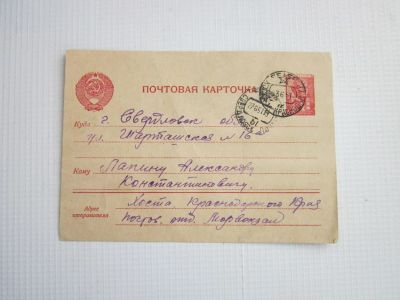 ПОЧТОВАЯ КАРТОЧКА
Куда г. Свердловск обл.
ул. Шарташская № 16
Кому Лапину Александру
Константиновичу.
Адрес отправителя Хоста Краснодарского Края
почтов. отд. Морвокзал